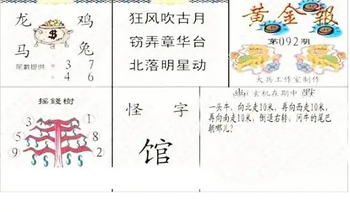 龙 鸡
马 兔
尾数提供 • 3 7
• 4 6
狂风吹古月
窃弄章华台
北落明星动
黄金報
第092期
大兵工作室制作
摇錢樹
1 4
5 2
9 8
怪 字
馆
玄机在期中
一头牛，向北走10米，再向西走10米，
再向南走10米，倒退右转，问牛的尾巴
朝哪儿？